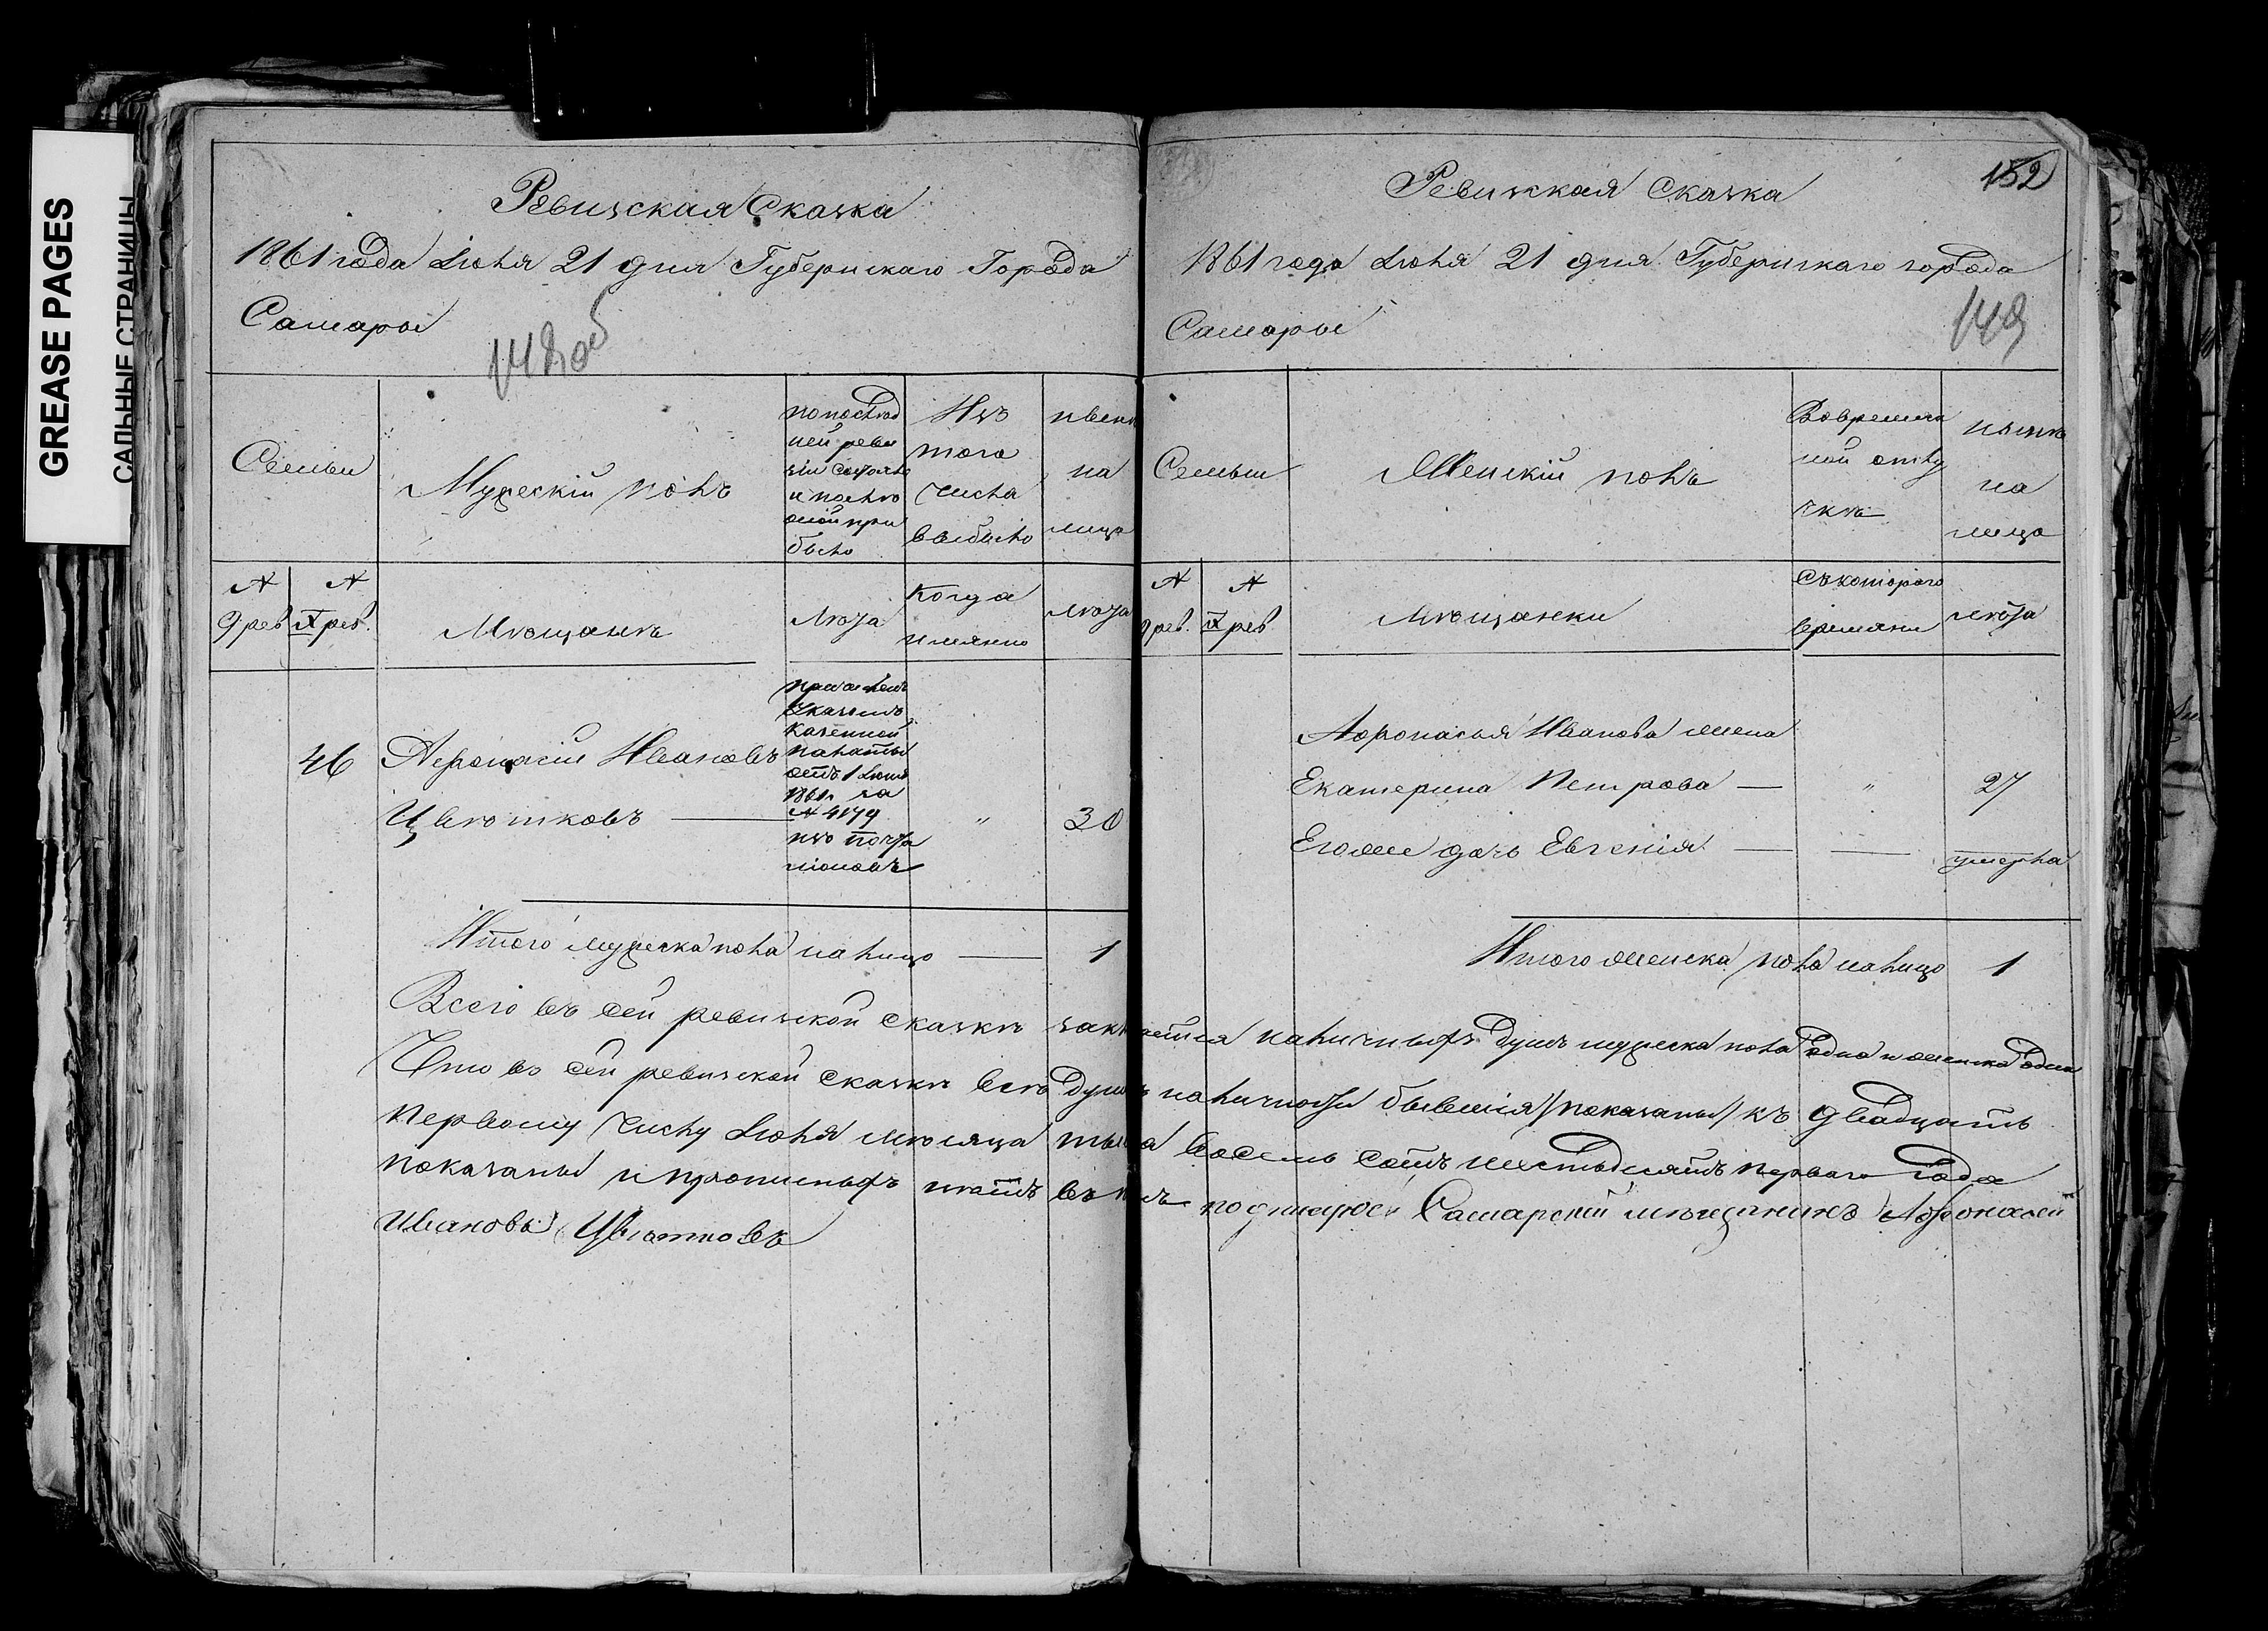 GREASE PAGES
САЛЬНЫЕ СТРАНИЦЫ
Ревизская Сказка
1861 года Іюля 21 дня Губернскаго Города
Самары
148 об
Семьи
Мужескій полъ
по послѣд
ней реви
зіи состояло
и послѣ
оной при
было
Изъ
того
числа
выбыло
нынѣ
на
лицо
№
9 рев
№
X рев.
Мѣщанъ
Лѣта
Когда
имянно
Лѣта
46
Афонасій Ивановъ
Цвѣтковъ
причисленъ
Указомъ
Казенной
Палаты
отъ 1 Іюня
1861 г. за
№ 4179
изъ почта
ліоновъ
"
30
Итого мужеска пола на лицо — 1
Ревизская Сказка
152
1861 года Іюля 21 дня Губернскаго города
Самары
149
Семьи
Женскій полъ
Во времен
ной отлу
чкѣ
нынѣ
на
лицо
№
9 рев.
№
X рев
Мѣщанки
Съ котораго
времяни
лѣта
Афонасья Иванова жена
Екатерина Петрова — " 27
Его же дочь Евгенія — — умерла
Итого женска пола на лицо 1
Всего въ сей ревизской сказкѣ наличныхъ душъ мужеска пола одна и женска одна
Что въ сей ревизской сказкѣ всѣ души на личности бывшія показаны къ двадцать
первому числу Іюля мѣсяца восемь сотъ шестьдесятъ перваго года
показаны и прописныхъ нѣтъ въ подпискою Самарскій мѣщанинъ Афонасей
Ивановъ Цвѣтковъ